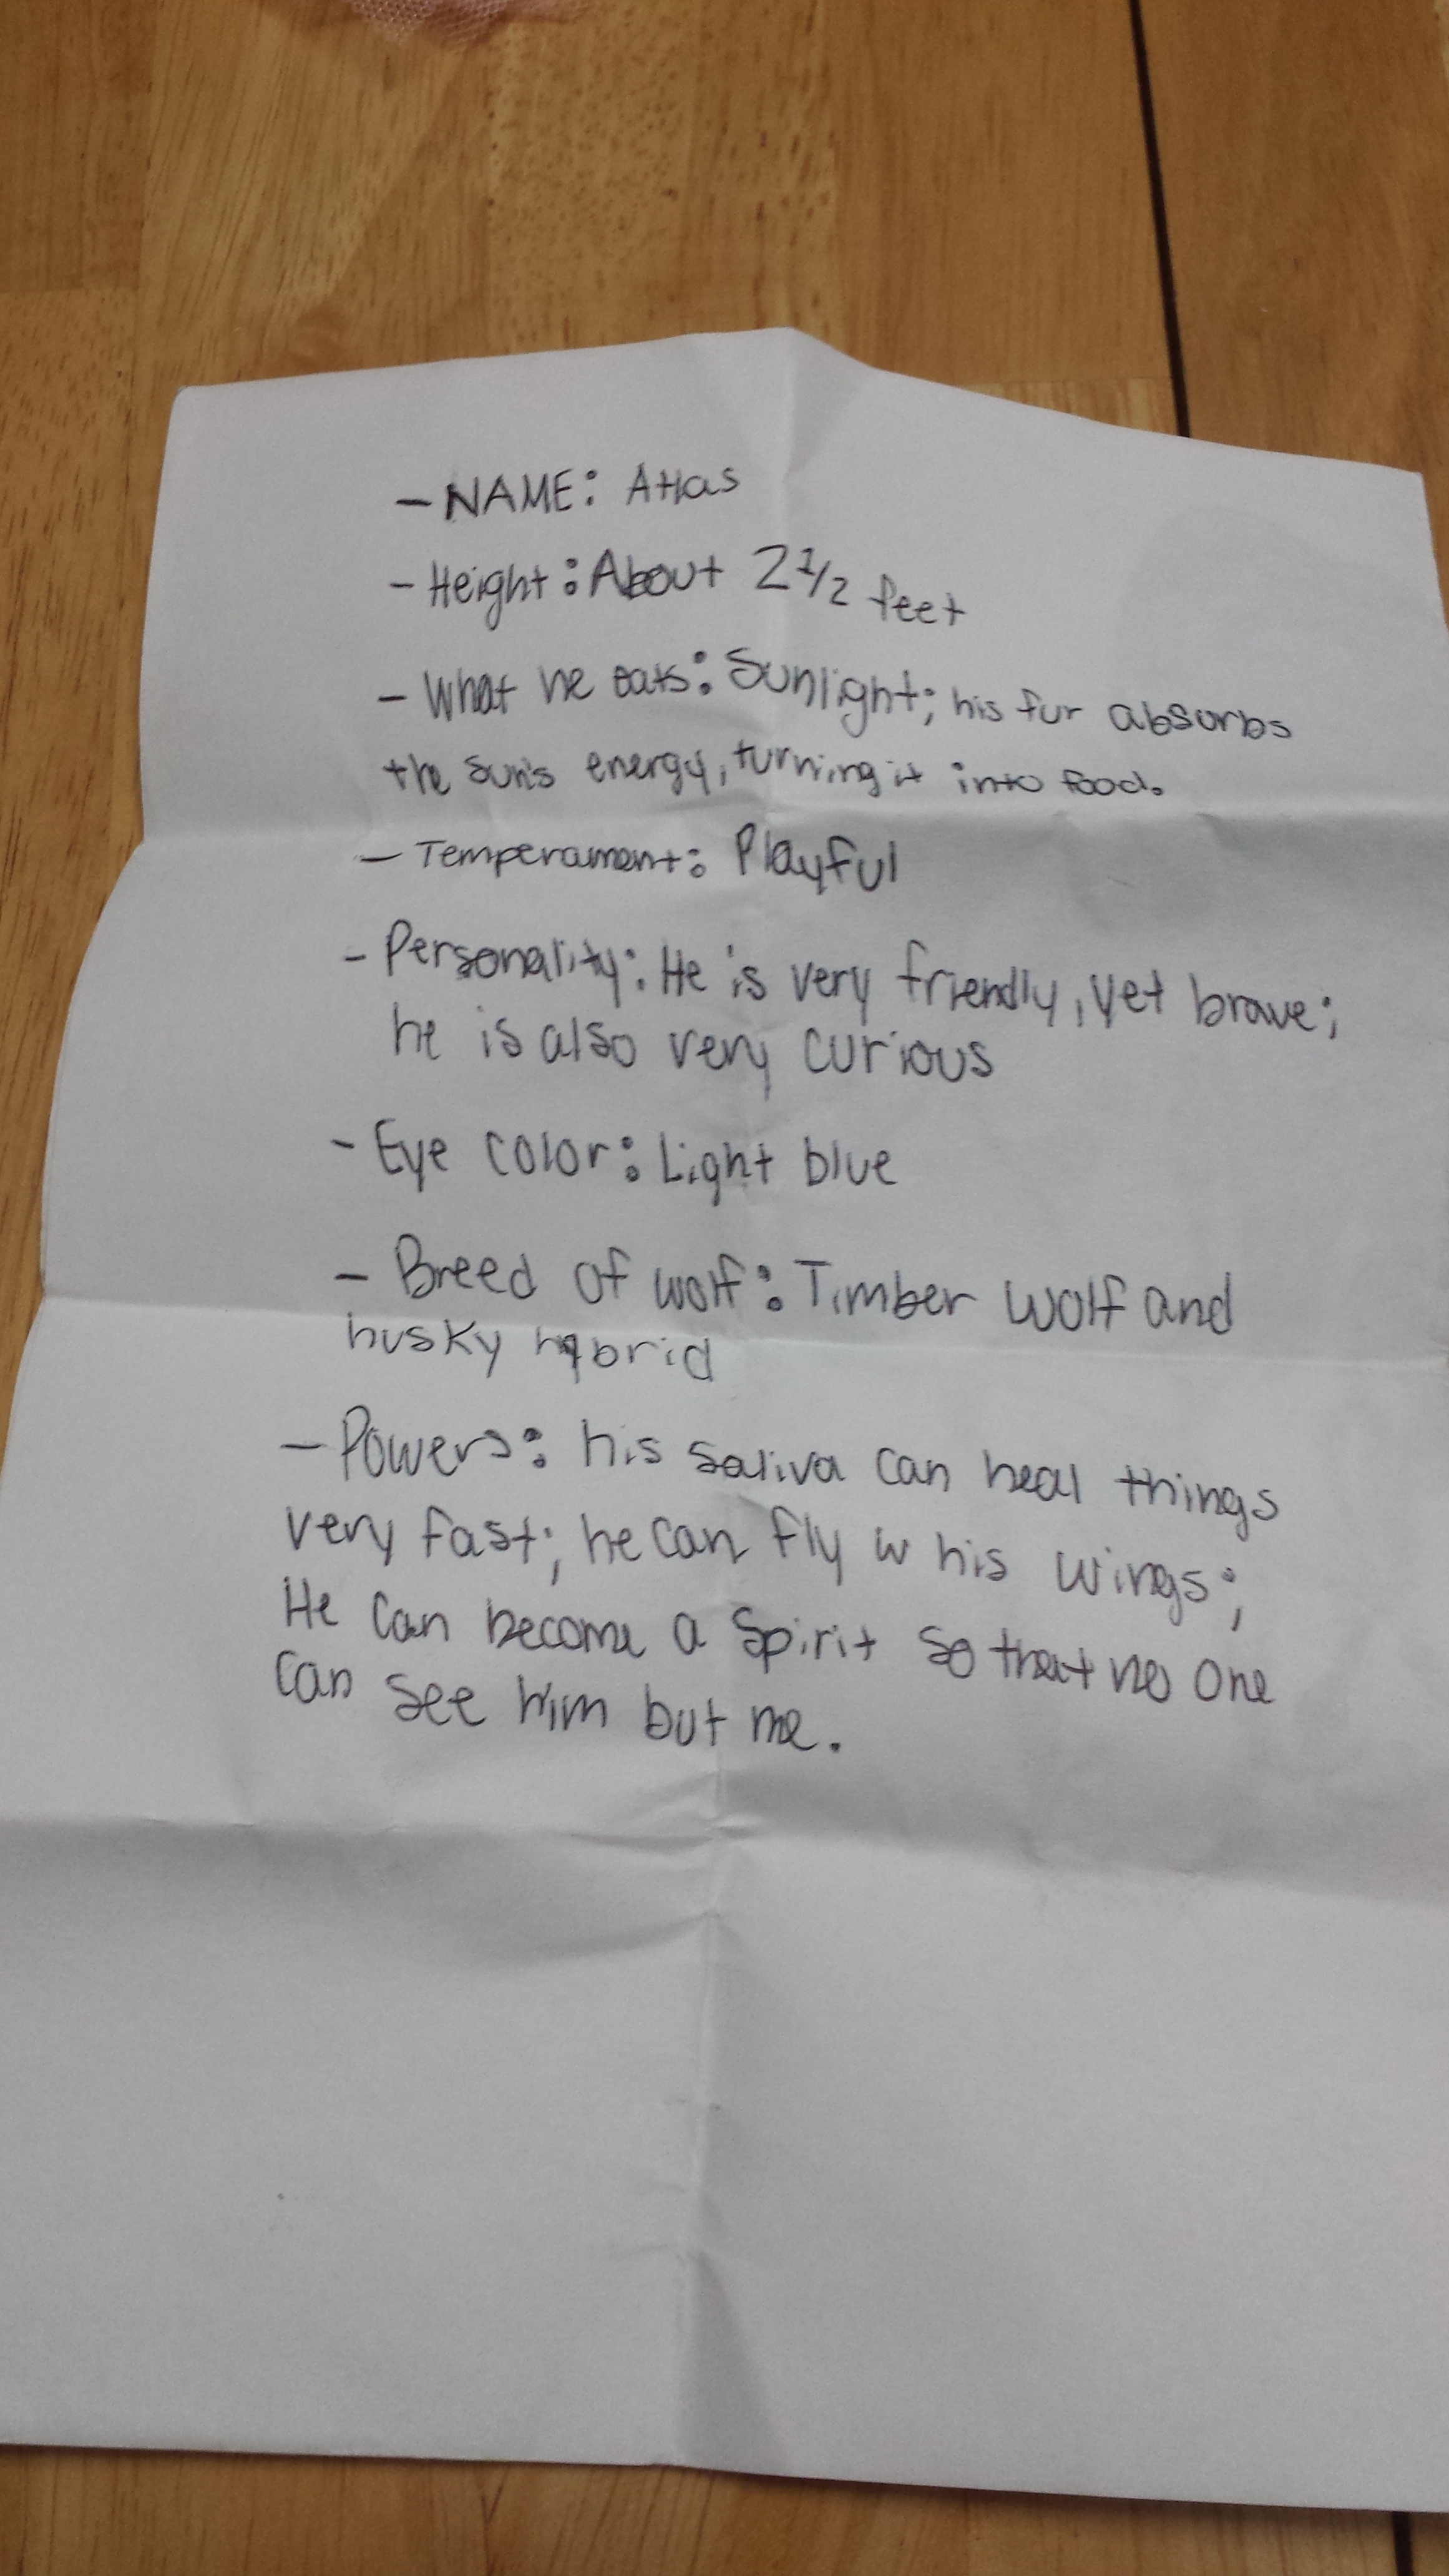 - NAME: Atlas
- Height: About 2 1/2 feet
- What he eats: Sunlight; his fur absorbs
the sun's energy, turning it into food.
- Temperament: Playful
- Personality: He is very friendly, yet brave;
he is also very curious
- Eye color: Light blue
- Breed of wolf: Timber wolf and
husky hybrid
- Powers: his saliva can heal things
very fast; he can fly w his wings;
He can become a spirit so that no one
can see him but me.